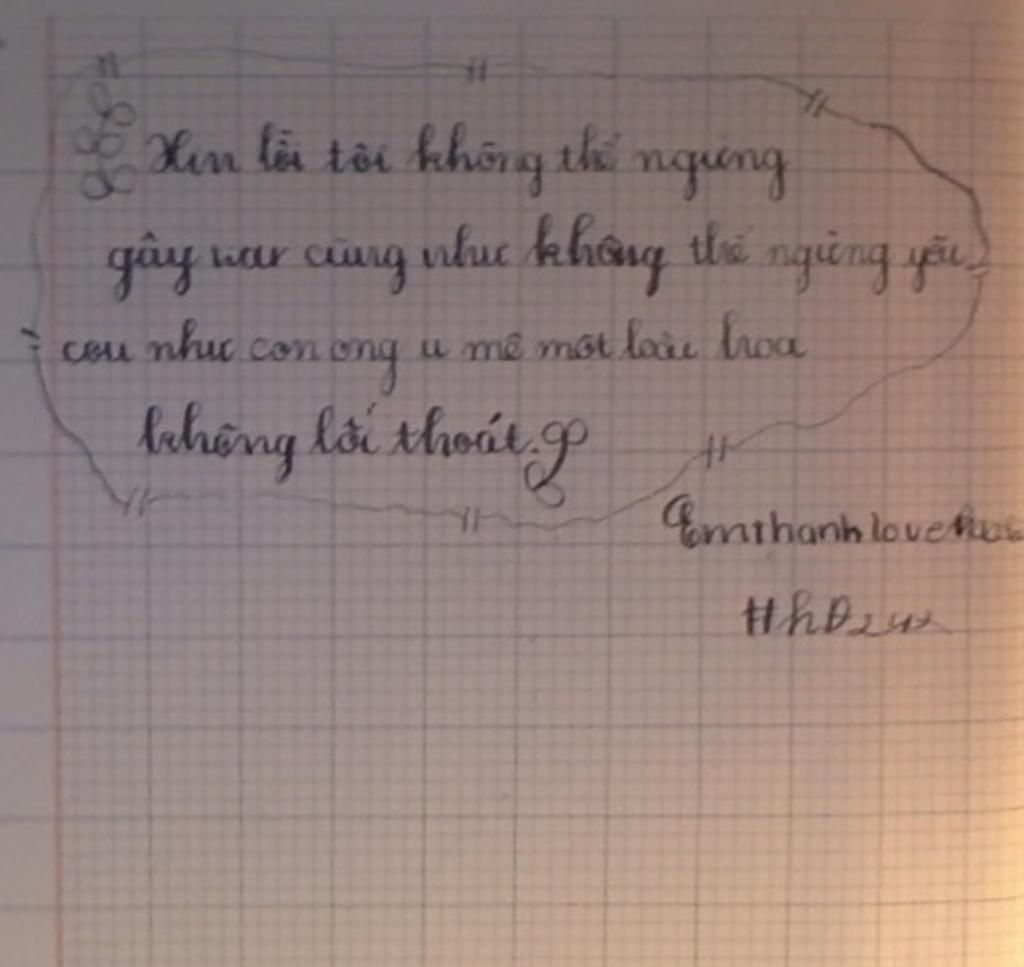 Xin lỗi tôi không thể ngưng
gây war cũng như không thể ngừng yêu
cậu như con ong u mê một loài hoa
không lối thoát.
Emthanhlove